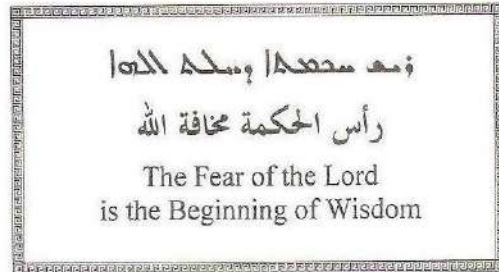 ܪܝܫ ܚܟܡܬܐ ܕܚܠܬ ܐܠܗܐ
رأس الحكمة مخافة الله
The Fear of the Lord
is the Beginning of Wisdom